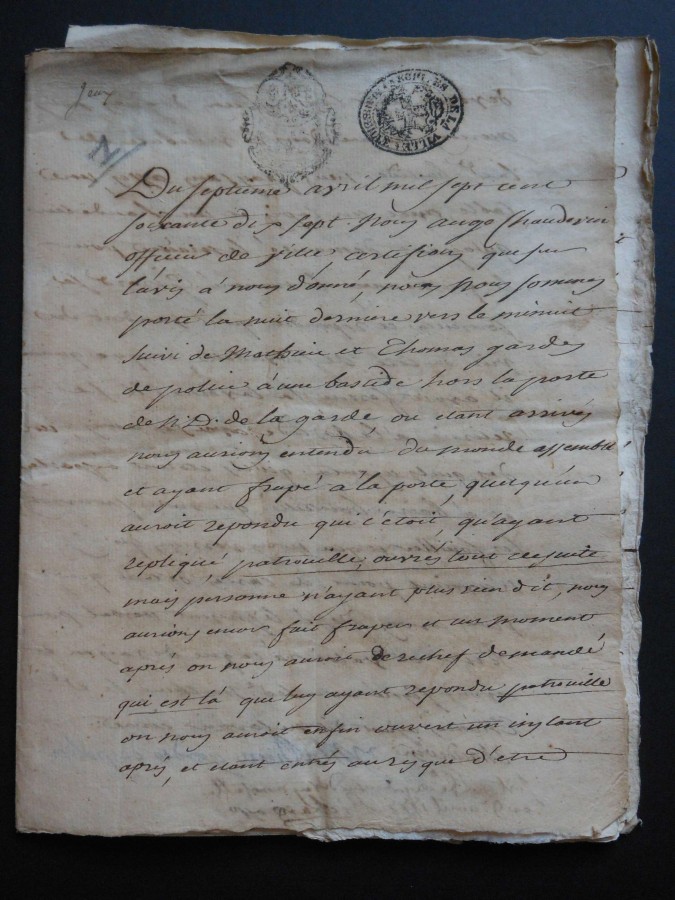 Jeux
Du septieme avril mil sept cent
soixante dix sept. Nous ange Chaudevin
officier de ville certifions que sur
l'avis á nous donné, nous nous sommes
porté la nuit derniere vers le minuit
suivi de Mathieu et Thomas gardes
de police à une bastide hors la porte
de N. D. de la garde ou etant arrivés
nous aurions entendu du monde assemblé
et ayant frapé a la porte, quelqu'un
auroit repondu qui c'etoit, qu'ayant
repliqué patrouille, ouvrés tout de suite
mais personne n'ayant plus rien dit, nous
aurions encor fait fraper et un moment
aprés on nous auroit derechef demandé
qui est lá que luy ayant repondu patrouille
on nous auroit enfin ouvert un instant
aprés, et etant entrés au risque d'etre